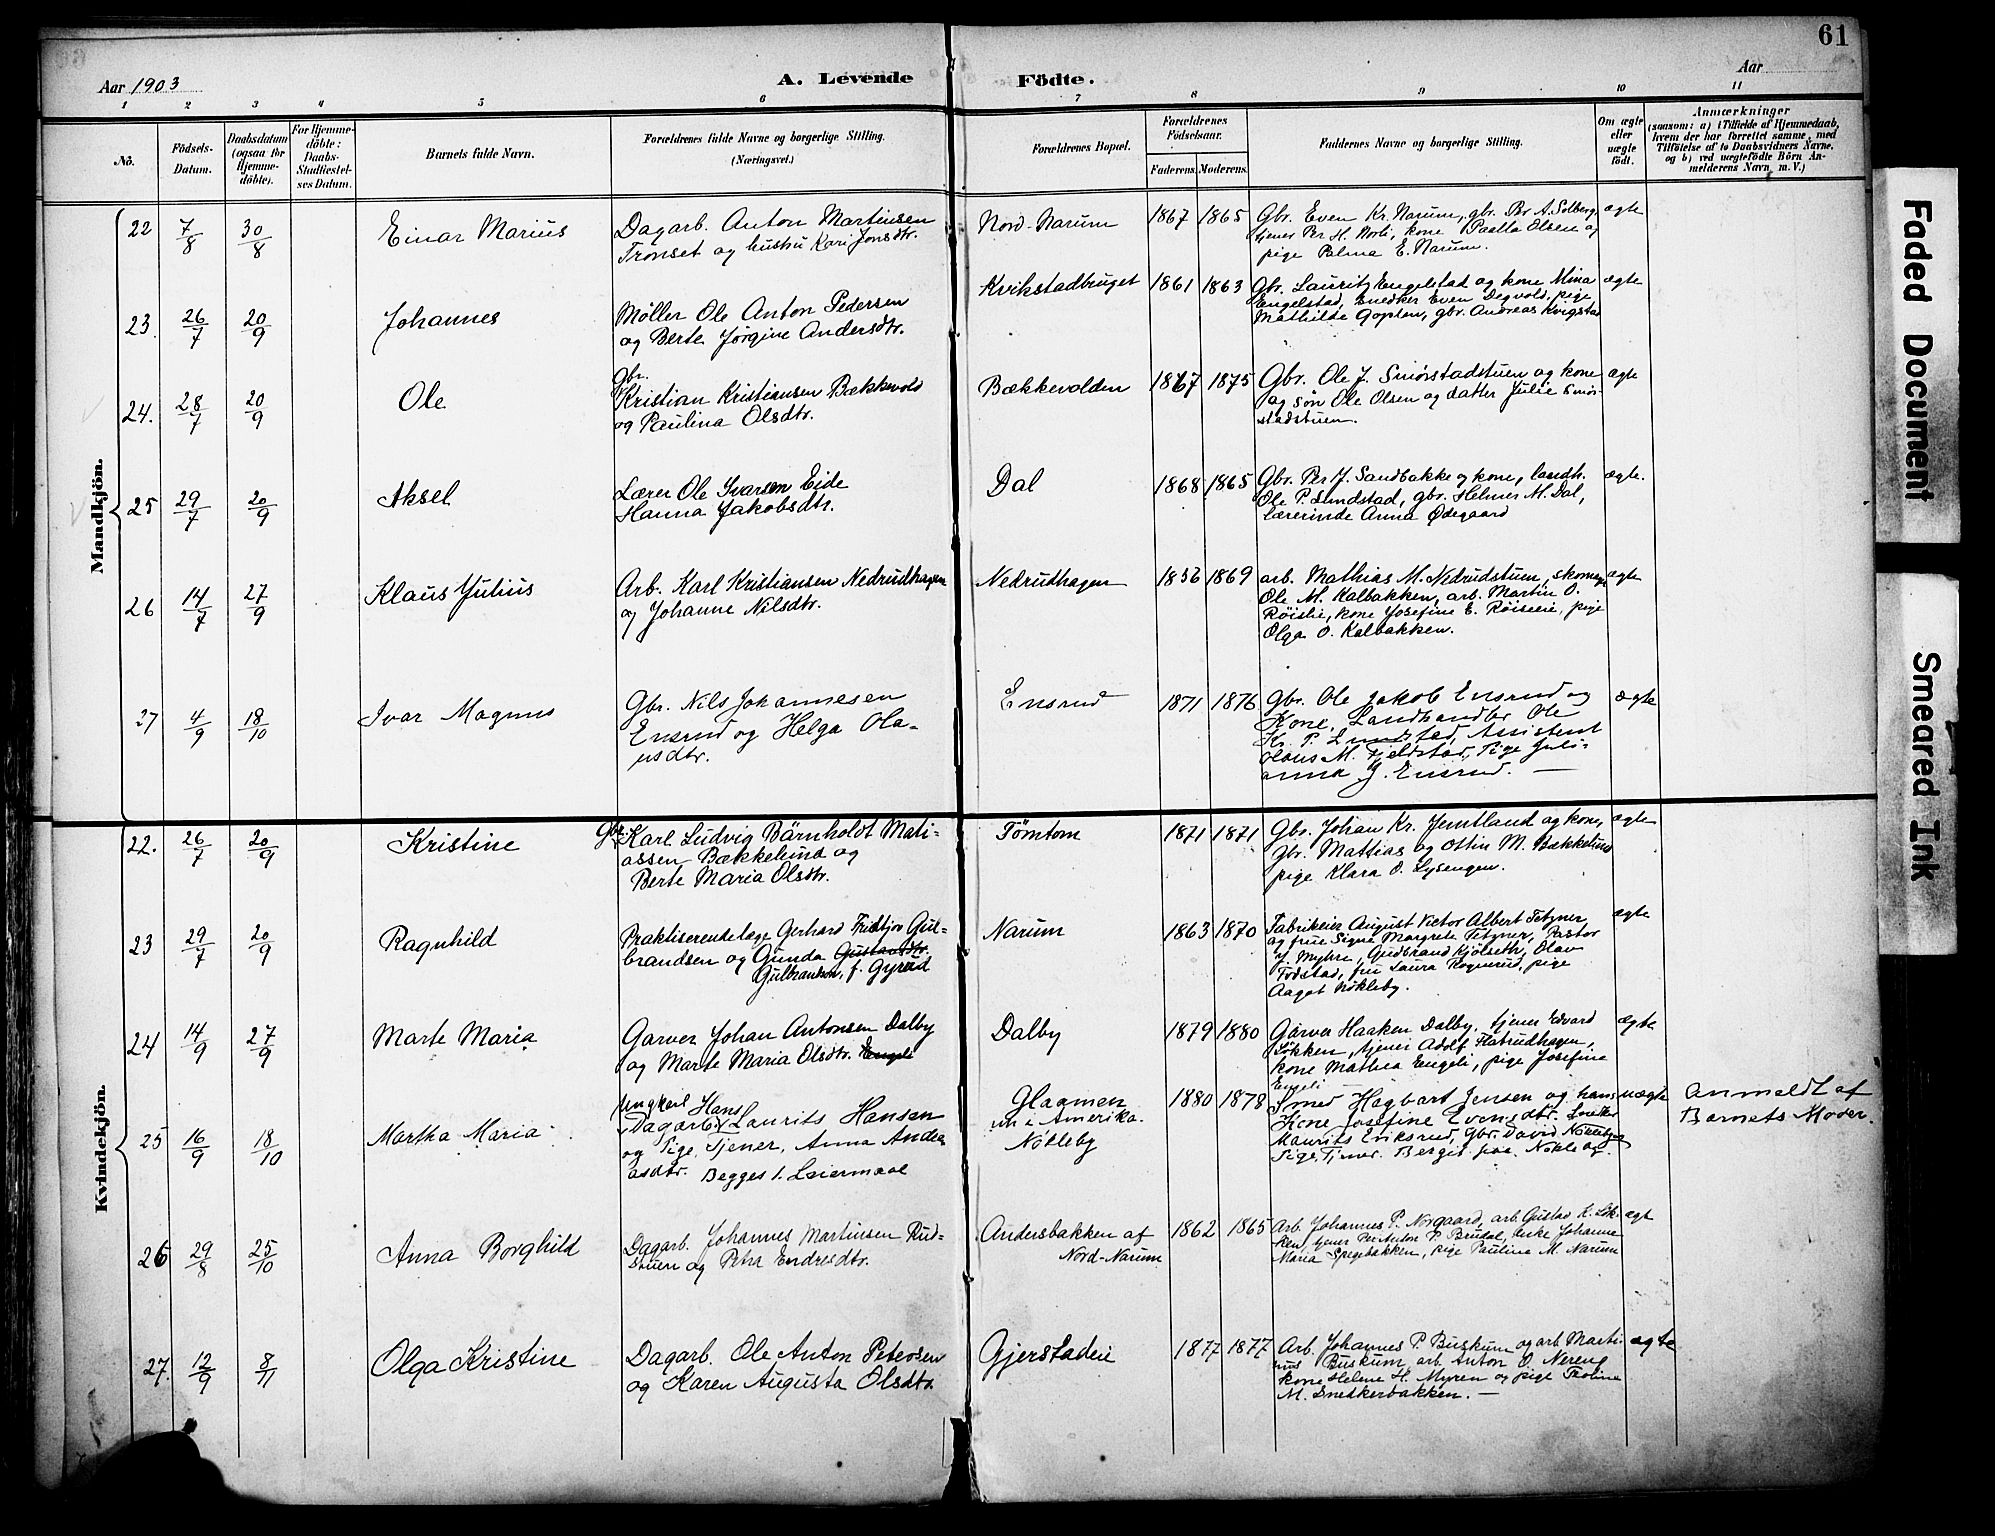 61
Aar 1903
A. Levende Födte.
Aar
1 2 3 4 5 6 7 8 9 10 11
No.
Födsels-Datum.
Daabsdatum (ogsaa for Hjemme-döbte).
For Hjemme-döbte: Daabs-Stadfæstel-ses Datum.
Barnets fulde Navn.
Forældrenes fulde Navne og borgerlige Stilling.
(Næringsvei.)
Forældrenes Bopæl.
Forældrenes Födselsaar.
Faderens. Moderens.
Faddernes Navne og borgerlige Stilling.
Om ægte eller uægte födt.
Anmærkninger
(saasom: a) i Tilfælde af Hjemmedaab,
hvem der har forrettet samme, med
Tilföielse af to Daabsvidners Navne,
og b) ved uægtefödte Börn An-
melderens Navn m. V.)
Mandkjön.
22 7/8 30/8 Einar Marius
Dagarb. Anton Martinsen
Tronset og hustru Kari Jonsdtr.
Nord-Narum 1867 1865
Gbr. Even Kr. Narum, gbr. Per A. Solberg,
tjener Per H. Norli, kone Paalla Olsen og
pige Palma E. Narum.
ægte
23. 26/7 20/9 Johannes
Møller Ole Anton Pedersen
og Berte Jørgine Andersdtr.
Kvikstadbruget 1861 1863
Gbr. Lauritz Engelstad og kone Mina
Engelstad, Snedker Even Degvold, pige
Mathilde Goplen, gbr. Andreas Kvigstad
ægte
24. 28/7 20/9 Ole
Gbr.
Kristian Kristiansen Bækkevold
og Paulina Olsdtr.
Bækkevolden 1867 1875
Gbr. Ole J. Smörstadstuen og kone
og søn Ole Olsen og datter Julie Smör-
stadstuen.
ægte
25 29/7 20/9 Aksel
Lærer Ole Ivarsen Eide
Hanna Jakobsdtr.
Dal 1868 1865
Gbr. Per J. Sandbakke og kone, landh.
Ole P. Lundstad, gbr. Helmer M. Dal,
lærerinde Anna Ødegaard
ægte.
26 14/7 27/9 Klaus Julius
Arb. Karl Kristiansen Nedrudhagen
og Johanne Nilsdtr.
Nedrudhagen 1856 1869
arb. Mathias M. Nedrudstuen, skomag.
Ole M. Kalbakken, arb. Martin O.
Röislie, kone Josefine E. Röiseie, pige
Olga O. Kalbakken.
ægte
27 4/9 18/10 Ivar Magnus
Gbr. Nils Johannesen
Ensrud og Helga Ola-
usdtr.
Ensrud 1871 1876
Gbr. Ole Jakob Ensrud og
Kone, Landhandler Ole
Kr. P. Lundstad, Assistent
Olaus M. Fjeldstad, Pige Juli-
anna J. Ensrud.
ægte
Kvindekjön.
22. 26/7 20/9 Kristine
Gbr. Karl Ludvig Bärnholdt Mati-
assen Bækkelund og
Berte Maria Olsdtr.
Tömtom 1871 1871
Gbr. Johan Kr. Jemtland og kone,
Gbr. Mattias og Ottin M. Bækkelund
pige Klara O. Lysengen.
ægte
23 29/7 20/9 Ragnhild
Praktiserende læge Gerhard Fridtjov Gul-
brandsen og Gunda Gustavsdtr.
Gulbrandsen, f. Gyrud
Narum 1863 1870
Fabrikeier August Victor Albert Tetzner
og frue Signe Margrete Tetzner, Pastor
Myhre, Gudbrand Kjölseth, Olav
Todstad, fru Laura Rognerud, pige
Aagot Nökleby.
ægte
24 14/9 27/9 Marte Maria
Garver Johan Antonsen Dalby
og Marte Maria Olsdtr. Engeli
Dalby 1879 1880
Garver Haaken Dalby, tjener Edvard
Løkken, tjener Adolf Flatrudhagen,
kone Mathea Engeli, pige Josefine
Engeli
ægte
25 16/9 18/10 Martha Maria
Ungkarl Hans
Dagarb. Laurits Hansen
og Pige, Tjener, Anna Andre-
asdtr. Begges 1. Leiermaal
Glaamen
nu i Amerika.
Nökleby
1880 1878
Smed Hagbart Jensen og hans
Kone Josefine Evensdtr.
Maurits Eriksrud, Gbr. David Nökleby
Pige, Tjener, Bergit paa Nökleby.
uægte
Anmeldt af
Barnets Moder.
26 29/8 25/10 Anna Borghild
Dagarb. Johannes Martinsen Rud-
stuen og Petra Endresdtr.
Andersbakken af
Nord-Narum
1862 1865
Arb. Johannes P. Norgaard, arb. Gustav K. Løk-
ken, tjener Per Anton P. Brudal, enke Johanne
Maria Spegebakken, pige Pauline M. Narum
ægt
27. 12/9 8/11 Olga Kristine
Dagarb. Ole Anton Petersen
og Karen Augusta Olsdtr.
Gjerstadeie 1877 1877
Arb. Johannes P. Buskum og arb. Marti-
nus Buskum, arb. Anton O. Nereng
kone Helene H. Myren og pige Taaline
M. Snedkerbakken.
ægte
Faded Document
Smeared Ink